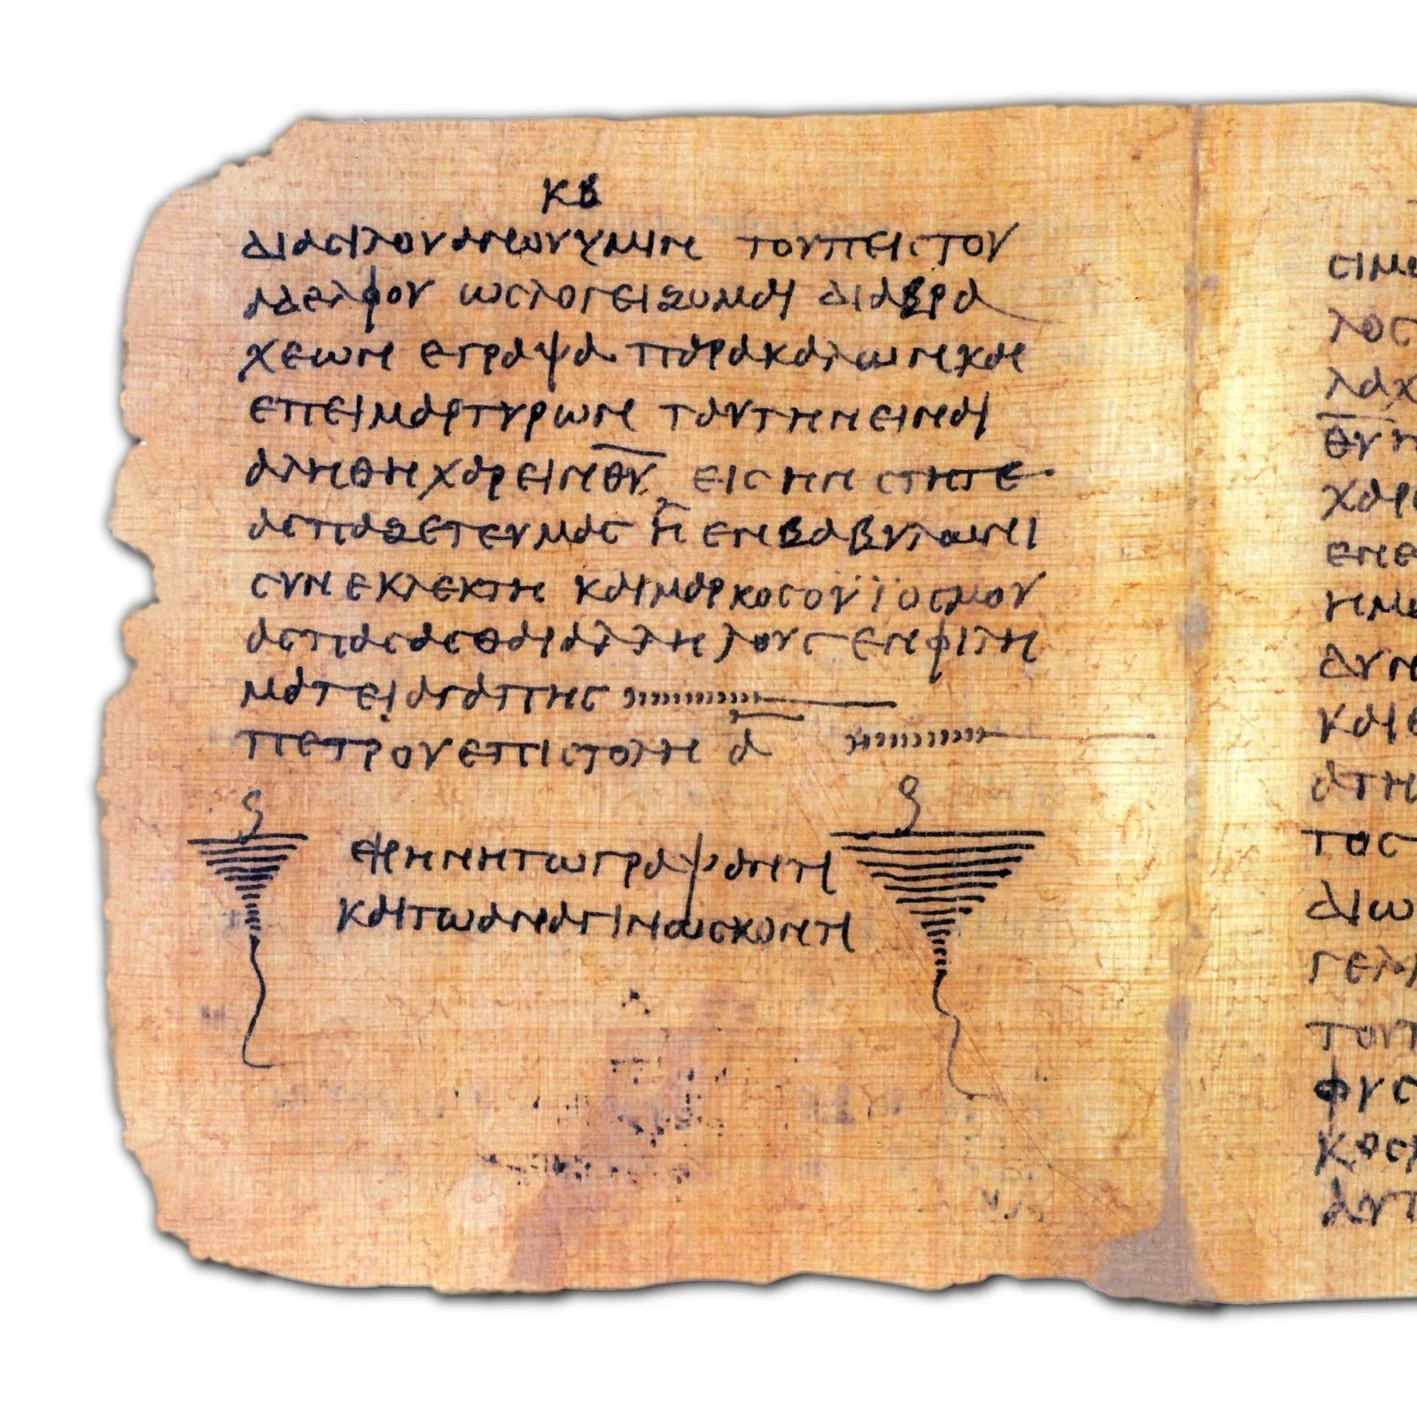 ΚΒ
ΔΙΑCΙΛΟΥΑΝΟΥΥΜΙΝ ΤΟΥΠΕΙCΤΟΥ
ΑΔΕΛΦΟΥ ΩCΛΟΓΕΙΖΟΜΑΙ ΔΙΑΒΡΑ
ΧΕΩΝ ΕΓΡΑΨΑ ΠΑΡΑΚΑΛΩΝΚΑΙ
ΕΠΕΙΜΑΡΤΥΡΩΝ ΤΑΥΤΗΝΕΙΝΑΙ
ΑΛΗΘΗΧΑΡΕΙΝΘ̅Υ̅ ΕΙCΗΝ CΤΗΤΕ
ΑCΠΑΖΕΤΕΥΜΑC Η ΕΝΒΑΒΥΛΩΝΙ
CΥΝΕΚΛΕΚΤΗ ΚΑΙΜΑΡΚΟCΟΫΪΟCΜΟΥ
ΑCΠΑCΑCΘΑΙΑΛΛΗΛΟΥC ΕΝΦΙΛΗ
ΜΑΤΕΙΑΓΑΠΗC
ΠΕΤΡΟΥΕΠΙCΤΟΛΗ Α̅
ΕΙΡΗΝΗΤΩΓΡΑΨΑΝΤΙ
ΚΑΙΤΩΑΝΑΓΙΝΩCΚΟΝΤΙ
CΙΜΕ
ΛΟC
ΛΑΧ
Θ̅Υ̅
ΧΑΡ
ΕΝΕ
ΗΜΩ
ΔΥΝ
ΚΑΙΕ
ΑΤΗ
ΤΟC
ΔΙΩ
ΓΕΛ
ΤΟΥΤ
ΦΥC
ΚΟC
ΑΥΤ